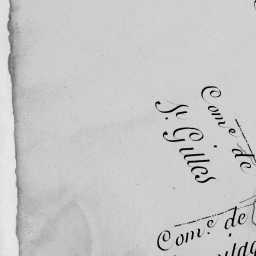 Com.e de
St. Gilles
Com.e de